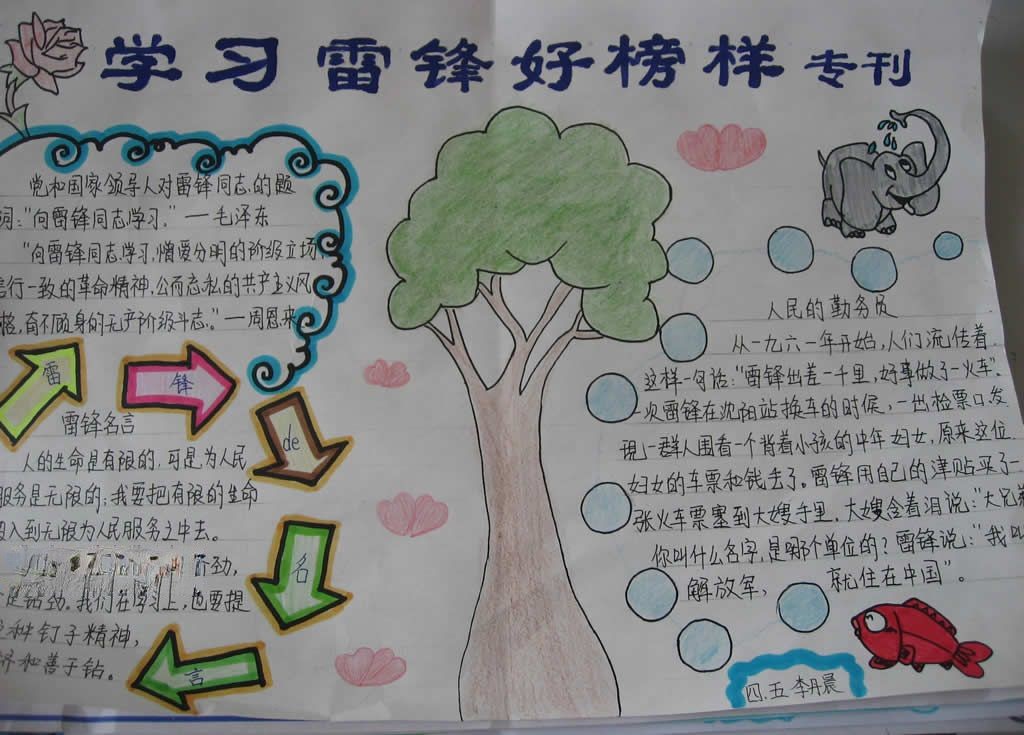 学习雷锋好榜样 专刊
党和国家领导人对雷锋同志的题
词:“向雷锋同志学习。”—毛泽东
“向雷锋同志学习,憎爱分明的阶级立场,
言行一致的革命精神,公而忘私的共产主义风
格,奋不顾身的无产阶级斗志。”—周恩来
雷
锋
de
名
言
雷锋名言
人的生命是有限的,可是,为人民
服务是无限的;我要把有限的生命
投入到无限为人民服务之中去。
不动,
钻劲。我们在学习上,也要提
这种钉子精神,
挤和善于钻。
人民的勤务员
从一九六一年开始,人们流传着
这样一句话:“雷锋出差一千里,好事做了一火车”。
一次雷锋在沈阳站换车的时候,一出检票口,发
现一群人围看一个背着小孩的中年妇女,原来这位
妇女的车票和钱丢了。雷锋用自己的津贴买了一
张火车票塞到大嫂手里,大嫂含着泪说:“大兄弟
你叫什么名字,是哪个单位的?雷锋说:“我叫
解放军, 就住在中国”。
四.五 李丹晨